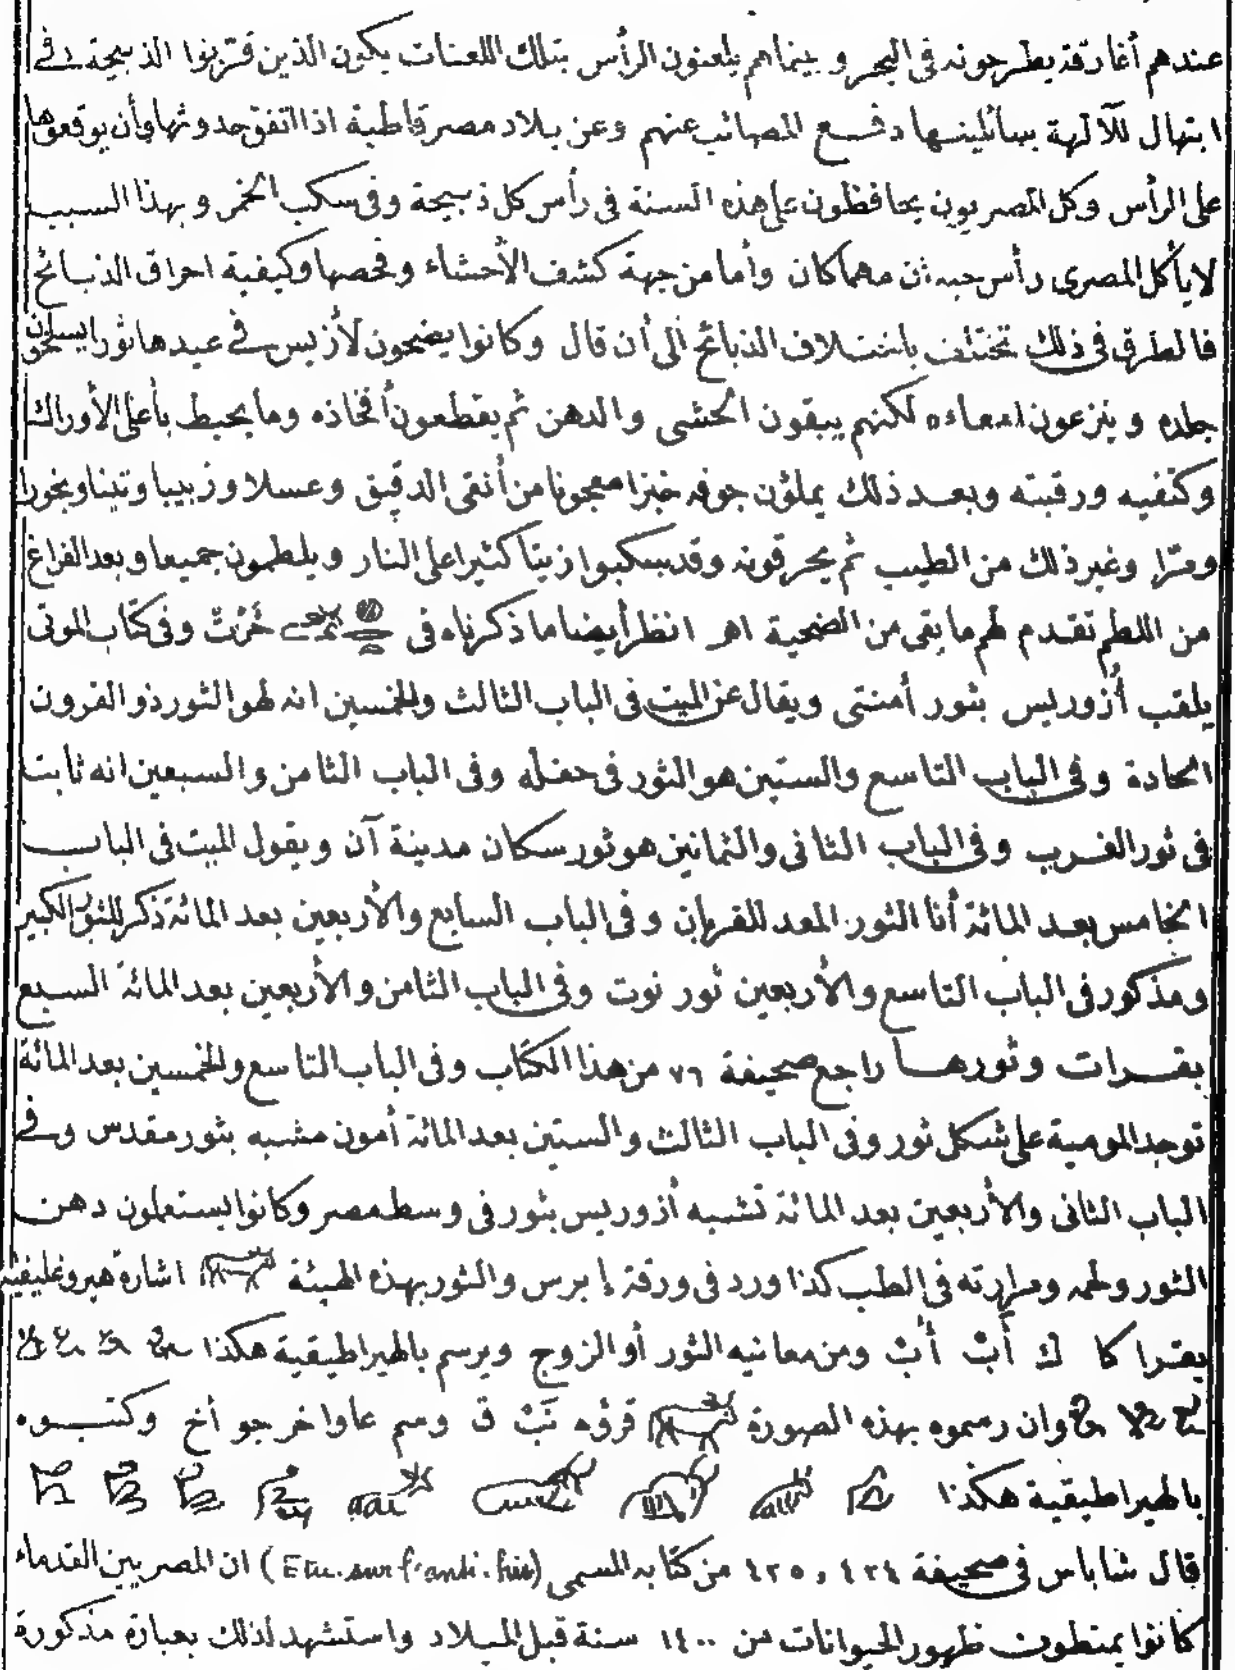 عندهم أغارقة يطرحونه فى البحر و بينما هم يلعنون الرأس بتلك اللعنات يكون الذين قربوا الذبيحة فى
ابتهال للآلهة يسائلينها دفع المصائب عنهم وعن بلاد مصر قاطبة اذا اتفق حدوثها وأن يوقعوها
على الرأس وكل المصريون يحافظون على هذه السنة فى رأس كل ذبيحة وفى سكب الخمر و بهذا السبب
لا يأكل المصرى رأس حيوان مهما كان وأما من جهة كشف الأحشاء وفحصها وكيفية احراق الذبائح
فالطرق فى ذلك تختلف باختلاف الذبائح الى أن قال وكانوا يضحون لأزيس فى عيدها ثورا يسلخون
جلده و ينزعون امعاءه لكنهم يبقون الحشى والدهن ثم يقطعون أفخاذه وما يحيط بأعلى الأوراك
وكتفيه ورقبته وبعد ذلك يملؤن جوفه خبزا معجونا من أنقى الدقيق وعسلا وزبيبا وتينا وبخورا
ومرّا وغير ذلك من الطيب ثم يحرقونه وقد سكبوا زيتا كثيرا على النار ويلطمون جميعا وبعد الفراغ
من اللطم تقدم لهم ما بقى من الضحية اهر انظر أيضا ما ذكرناه فى خَرْتْ وفى كتاب الموتى
يلقب أزوريس بثور أمنتى ويقال عن الميت فى الباب الثالث والخمسين انه لهو الثور ذو القرون
الحادة وفى الباب التاسع والستين هو الثور فى حقله وفى الباب الثامن والسبعين انه ثابت
فى ثور الغرب وفى الباب الثانى والثمانين هو ثور سكان مدينة آن ويقول الميت فى الباب
الخامس بعد المائة أنا الثور المعد للقربان وفى الباب السابع والأربعين بعد المائة ذكر للثور الكبير
ومذكور فى الباب التاسع والأربعين ثور نوت وفى الباب الثامن والأربعين بعد المائة السبع
بقرات وثورها راجع صحيفة ٧٦ من هذا الكتاب وفى الباب التاسع والخمسين بعد المائة
توجد المومية على شكل ثور وفى الباب الثالث والستين بعد المائة أمون مشبه بثور مقدس وفى
الباب الثانى والأربعين بعد المائة تشبه أزوريس بثور فى وسط مصر وكانوا يستعملون دهن
الثور ولحمه ومرارته فى الطب كذا ورد فى ورقة إبرس والثور بهذه الهيئة اشارة هيروغليفية
يقرا كا لث أَبْ أَبْ ومن معانيه الثور أو الزوج ويرسم بالهيراطيقية هكذا
وان رسموه بهذه الصورة قرؤه نَبْ ق وسم عاوا خر جو أخ وكتبوه
بالهيراطيقية هكذا
قال شاباس فى صحيفة ٤٢٤ و ٤٢٥ من كتابه المسمى (Etu. sur l'anti. his) ان المصريين القدماء
كانوا يمتطون ظهور الحيوانات من ١٤٠٠ سنة قبل الميلاد واستشهد لذلك بعبارة مذكورة